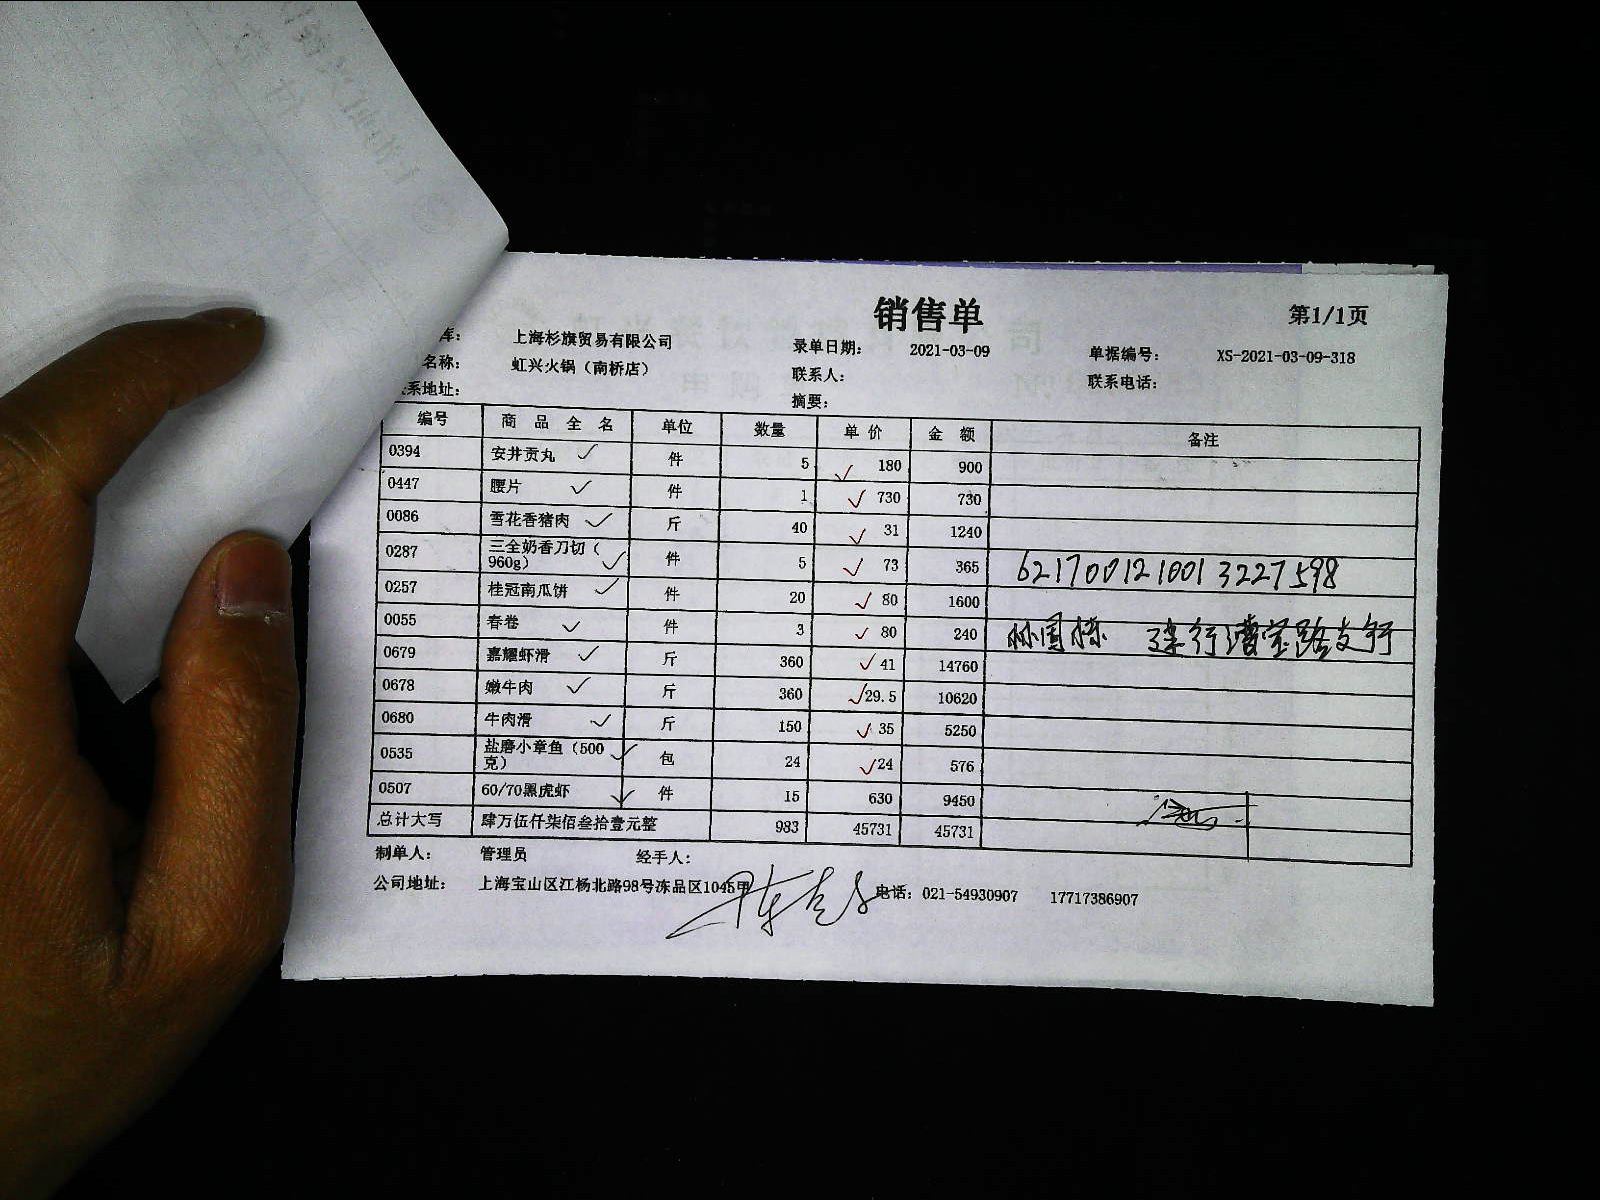 销售单
第1/1页
库： 上海杉旗贸易有限公司 录单日期： 2021-03-09 单据编号： XS-2021-03-09-318
名称： 虹兴火锅（南桥店） 联系人： 联系电话：
系地址： 摘要：
编号 商 品 全 名 单位 数量 单 价 金 额 备注
0394 安井贡丸 件 5 180 900
0447 腰片 件 1 730 730
0086 雪花香猪肉 斤 40 31 1240
0287 三全奶香刀切（960g） 件 5 73 365 6217001210013227598
0257 桂冠南瓜饼 件 20 80 1600
0055 春卷 件 3 80 240 建行漕宝路支行
0679 嘉耀虾滑 斤 360 41 14760
0678 嫩牛肉 斤 360 29.5 10620
0680 牛肉滑 斤 150 35 5250
0535 盐磨小章鱼（500克） 包 24 24 576
0507 60/70黑虎虾 件 15 630 9450
总计大写 肆万伍仟柒佰叁拾壹元整 983 45731 45731
制单人： 管理员 经手人：
公司地址： 上海宝山区江杨北路98号冻品区1045甲 电话：021-54930907 17717386907